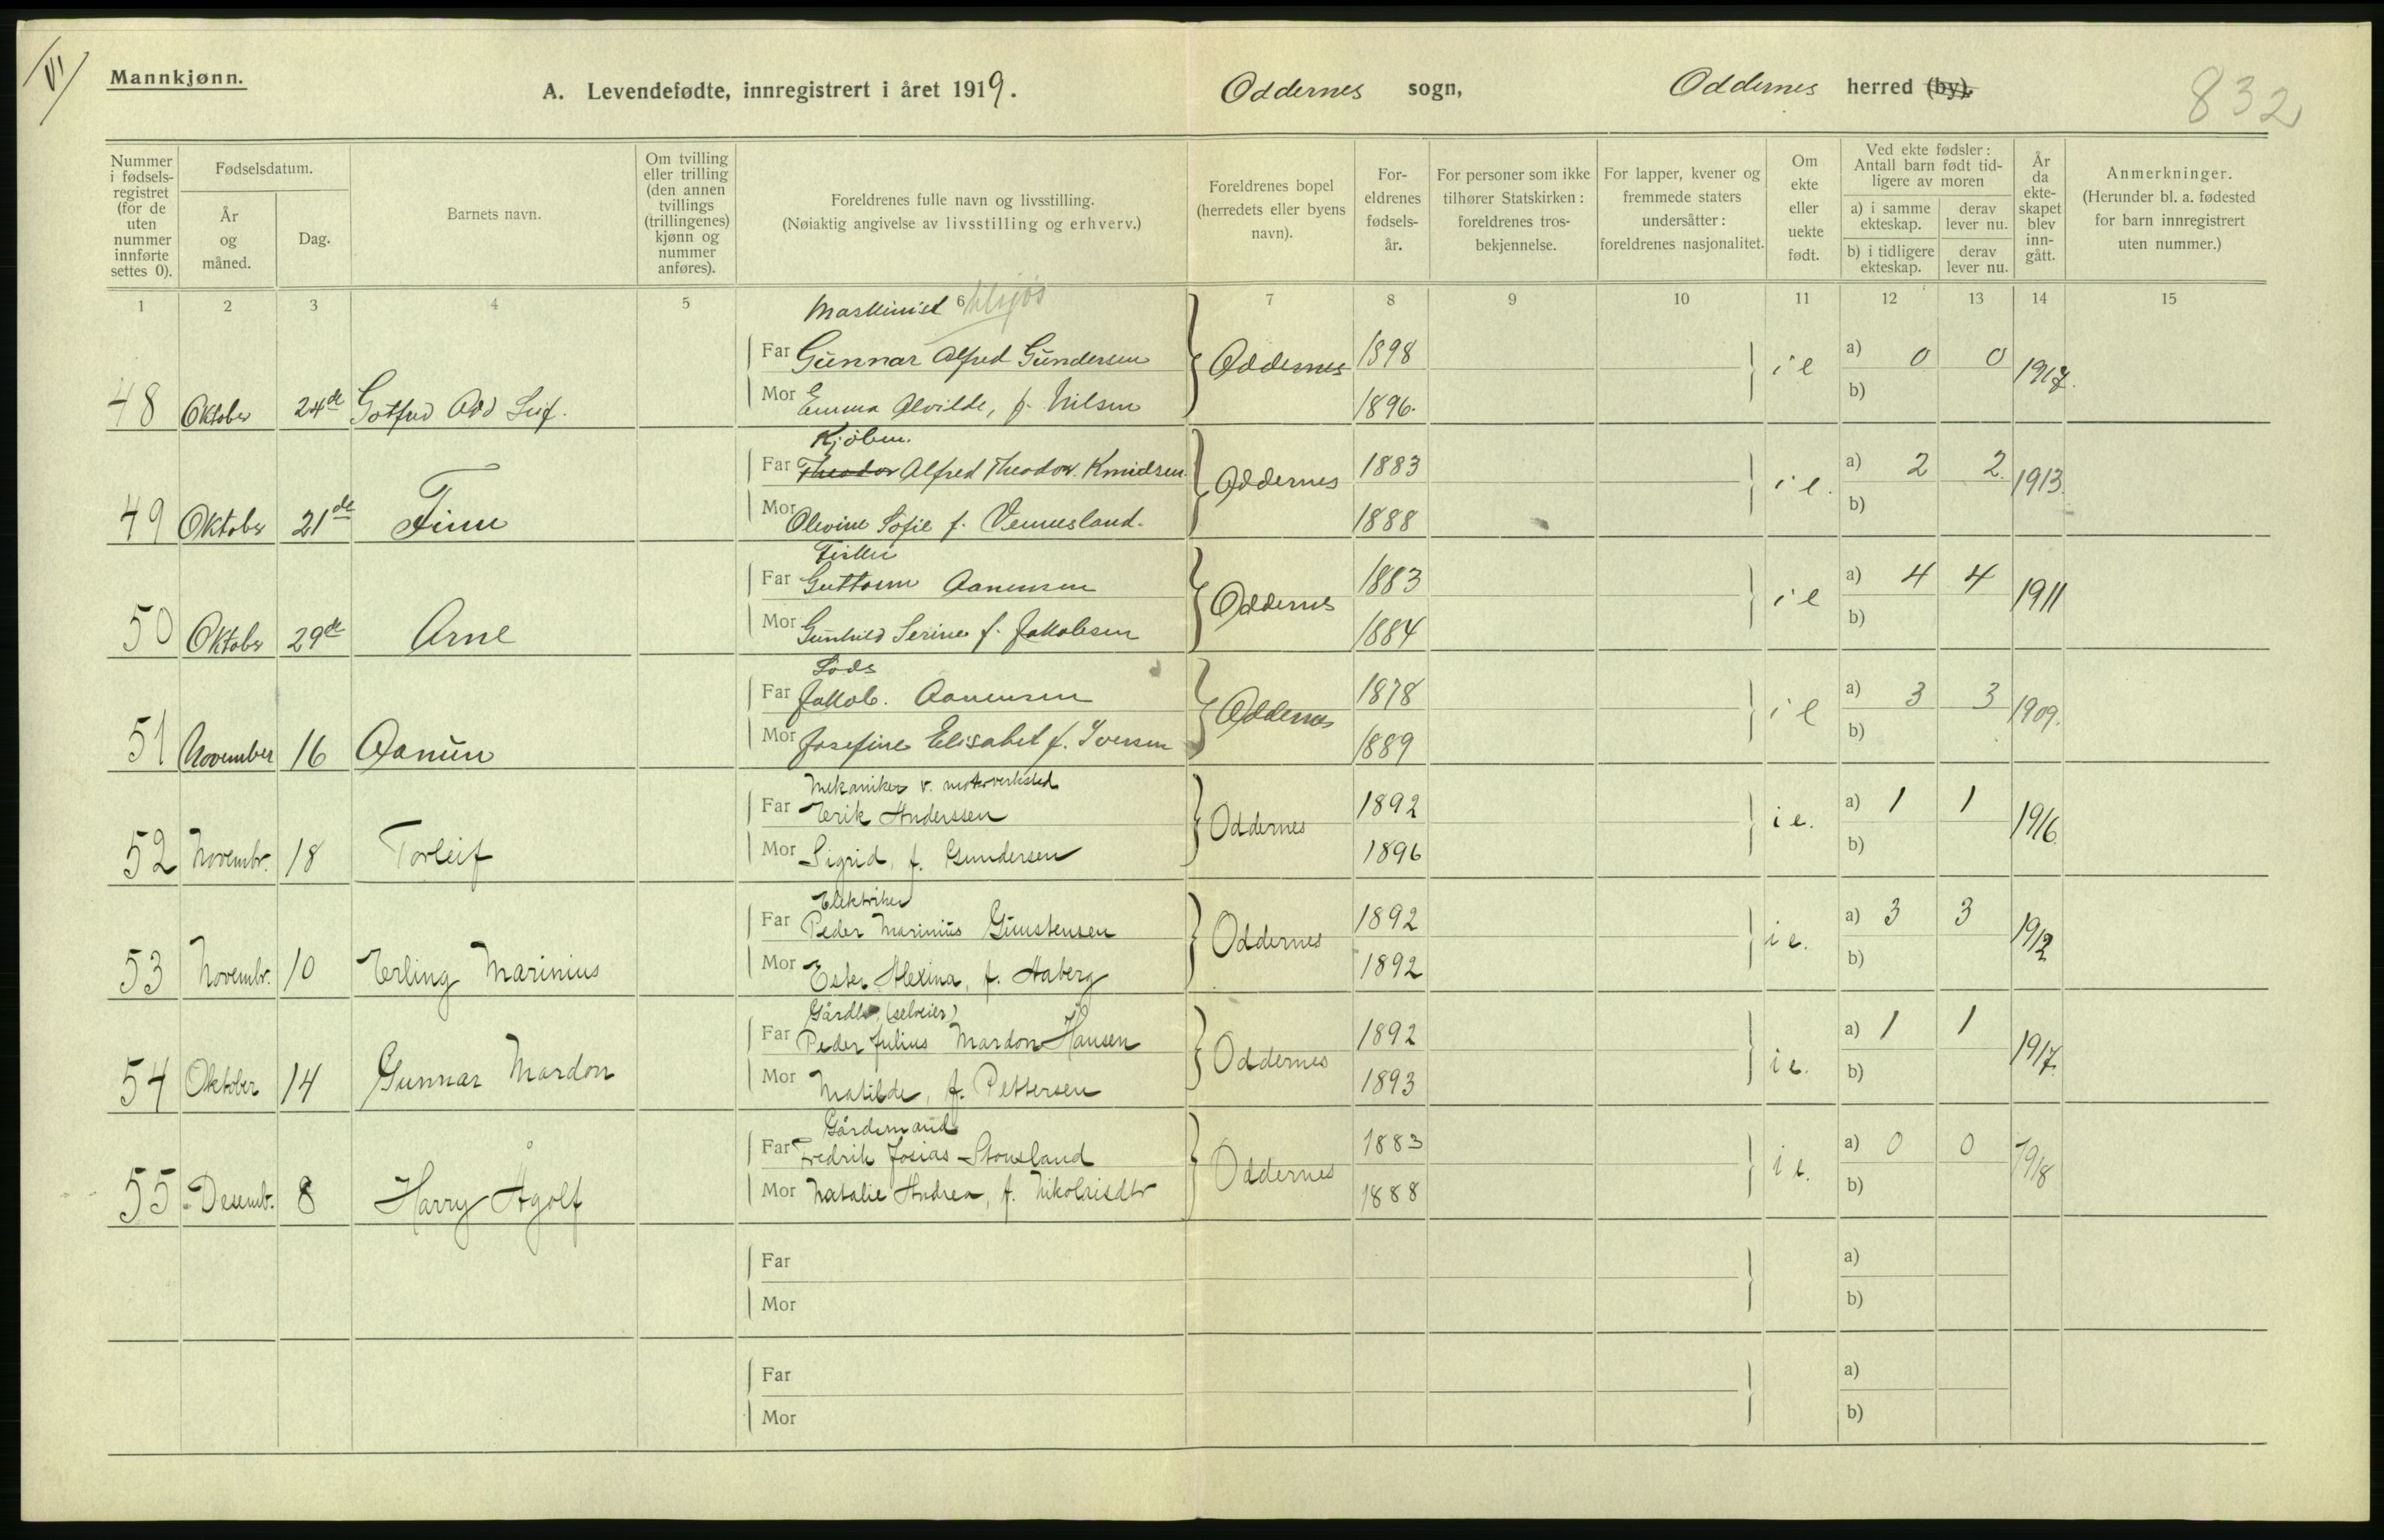 VI
Mannkjønn.
A. Levendefødte, innregistrert i året 1919.
Oddernes sogn,
Oddernes herred (by).
832
Nummer i fødsels-registret (for de uten nummer innførte settes 0).
Fødselsdatum.
År og måned.
Dag.
Barnets navn.
Om tvilling eller trilling (den annen tvillings (trillingenes) kjønn og nummer anføres).
Foreldrenes fulle navn og livsstilling.
(Nøiaktig angivelse av livsstilling og erhverv.)
Foreldrenes bopel (herredets eller byens navn).
For-eldrenes fødsels-år.
For personer som ikke tilhører Statskirken: foreldrenes tros-bekjennelse.
For lapper, kvener og fremmede staters undersåtter: foreldrenes nasjonalitet.
Om ekte eller uekte født.
Ved ekte fødsler: Antall barn født tid-ligere av moren
a) i samme ekteskap.
derav lever nu.
b) i tidligere ekteskap.
derav lever nu.
År da ekte-skapet blev inn-gått.
Anmerkninger.
(Herunder bl. a. fødested for barn innregistrert uten nummer.)
1 2 3 4 5 6 7 8 9 10 11 12 13 14 15
Maskinist
Far Gunnar Alfred Gundersen Oddernes 1898 i e a) 0 0 1917.
48 Oktober 24de Gotfred Odd Leif. Mor Emma Alvilde, f. Nilsen 1896. b)
Kjøbm.
Far Theodor Alfred Theodor Knudsen. Oddernes 1883 i e. a) 2 2 1913.
49 Oktober 21de Finn Mor Olevine Sofie f. Vennesland. 1888 b)
Fisker
Far Guttorm Aanensen Oddernes 1883 i e a) 4 4 1911
50 Oktober 29de Arne Mor Gunhild Serine f. Jakobsen 1884 b)
Lods
Far Jakob. Aanensen Oddernes 1878 i e a) 3 3 1909.
51 November 16 Aanun Mor Josefine Elisabet f. Iversen 1889 b)
Mekaniker v. motorverksted
Far Erik Anderssen Oddernes 1892 i e. a) 1 1 1916.
52 Novembr. 18 Torleif Mor Sigrid, f. Gundersen 1896 b)
Elektriker
Far Peder Marinius Gunstensen Oddernes 1892 i e. a) 3 3 1912
53 Novembr. 10 Erling Marinius Mor Ester Alexina, f. Aaberg 1892 b)
Gårdbr. (selveier)
Far Peder Julius Mardon Hansen Oddernes 1892 i e. a) 1 1 1917.
54 Oktober 14 Gunnar Mardon Mor Matilde, f. Pettersen 1893 b)
Gårdsmand
Far Fredrik Josias Stousland Oddernes 1883 i e. a) 0 0 1918
55 Desemb. 8 Harry Ågolf Mor Natalie Andrea, f. Nikolaisdtr 1888 b)
Far a)
Mor b)
Far a)
Mor b)